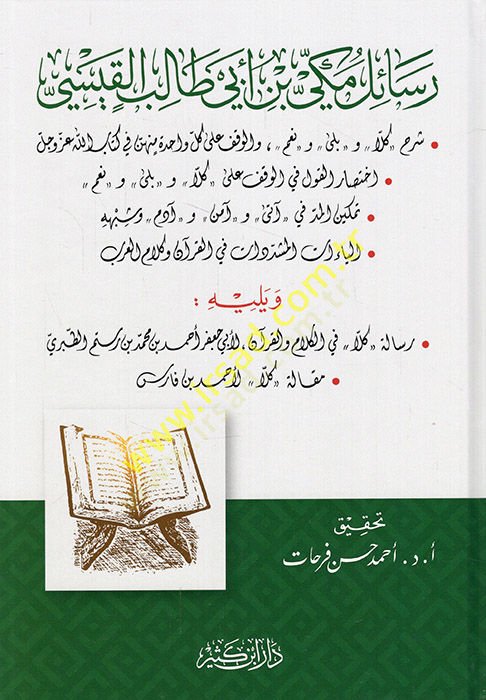 رسائل مكي بن أبي طالب القيسي
• شرح «كلّا» و«بلى» و«نعم»، والوقف على كل واحدة منهن في كتاب الله عز وجل
• اختصار القول في الوقف على «كلّا» و«بلى» و«نعم»
• تمكين المد في «آتى» و«آمن» و«آدم» وشبهه
• الياءات المشددات في القرآن وكلام العرب
ويليه :
• رسالة «كلّا» في الكلام والقرآن، لأبي جعفر أحمد بن محمد بن رستم الطبري
• مقالة «كلّا» لأحمد بن فارس
www.irsad.com.tr
irsad.com.tr
تحقيق
أ. د. أحمد حسن فرحات
دار ابن كثير